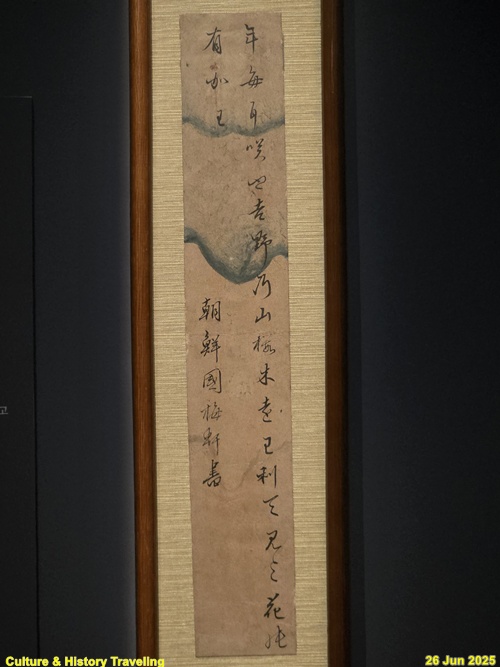 年毎耳咲也吉野乃山桜木遠利天見与花能
有加
朝鮮國梅軒書
고
Culture & History Traveling
26 Jun 2025